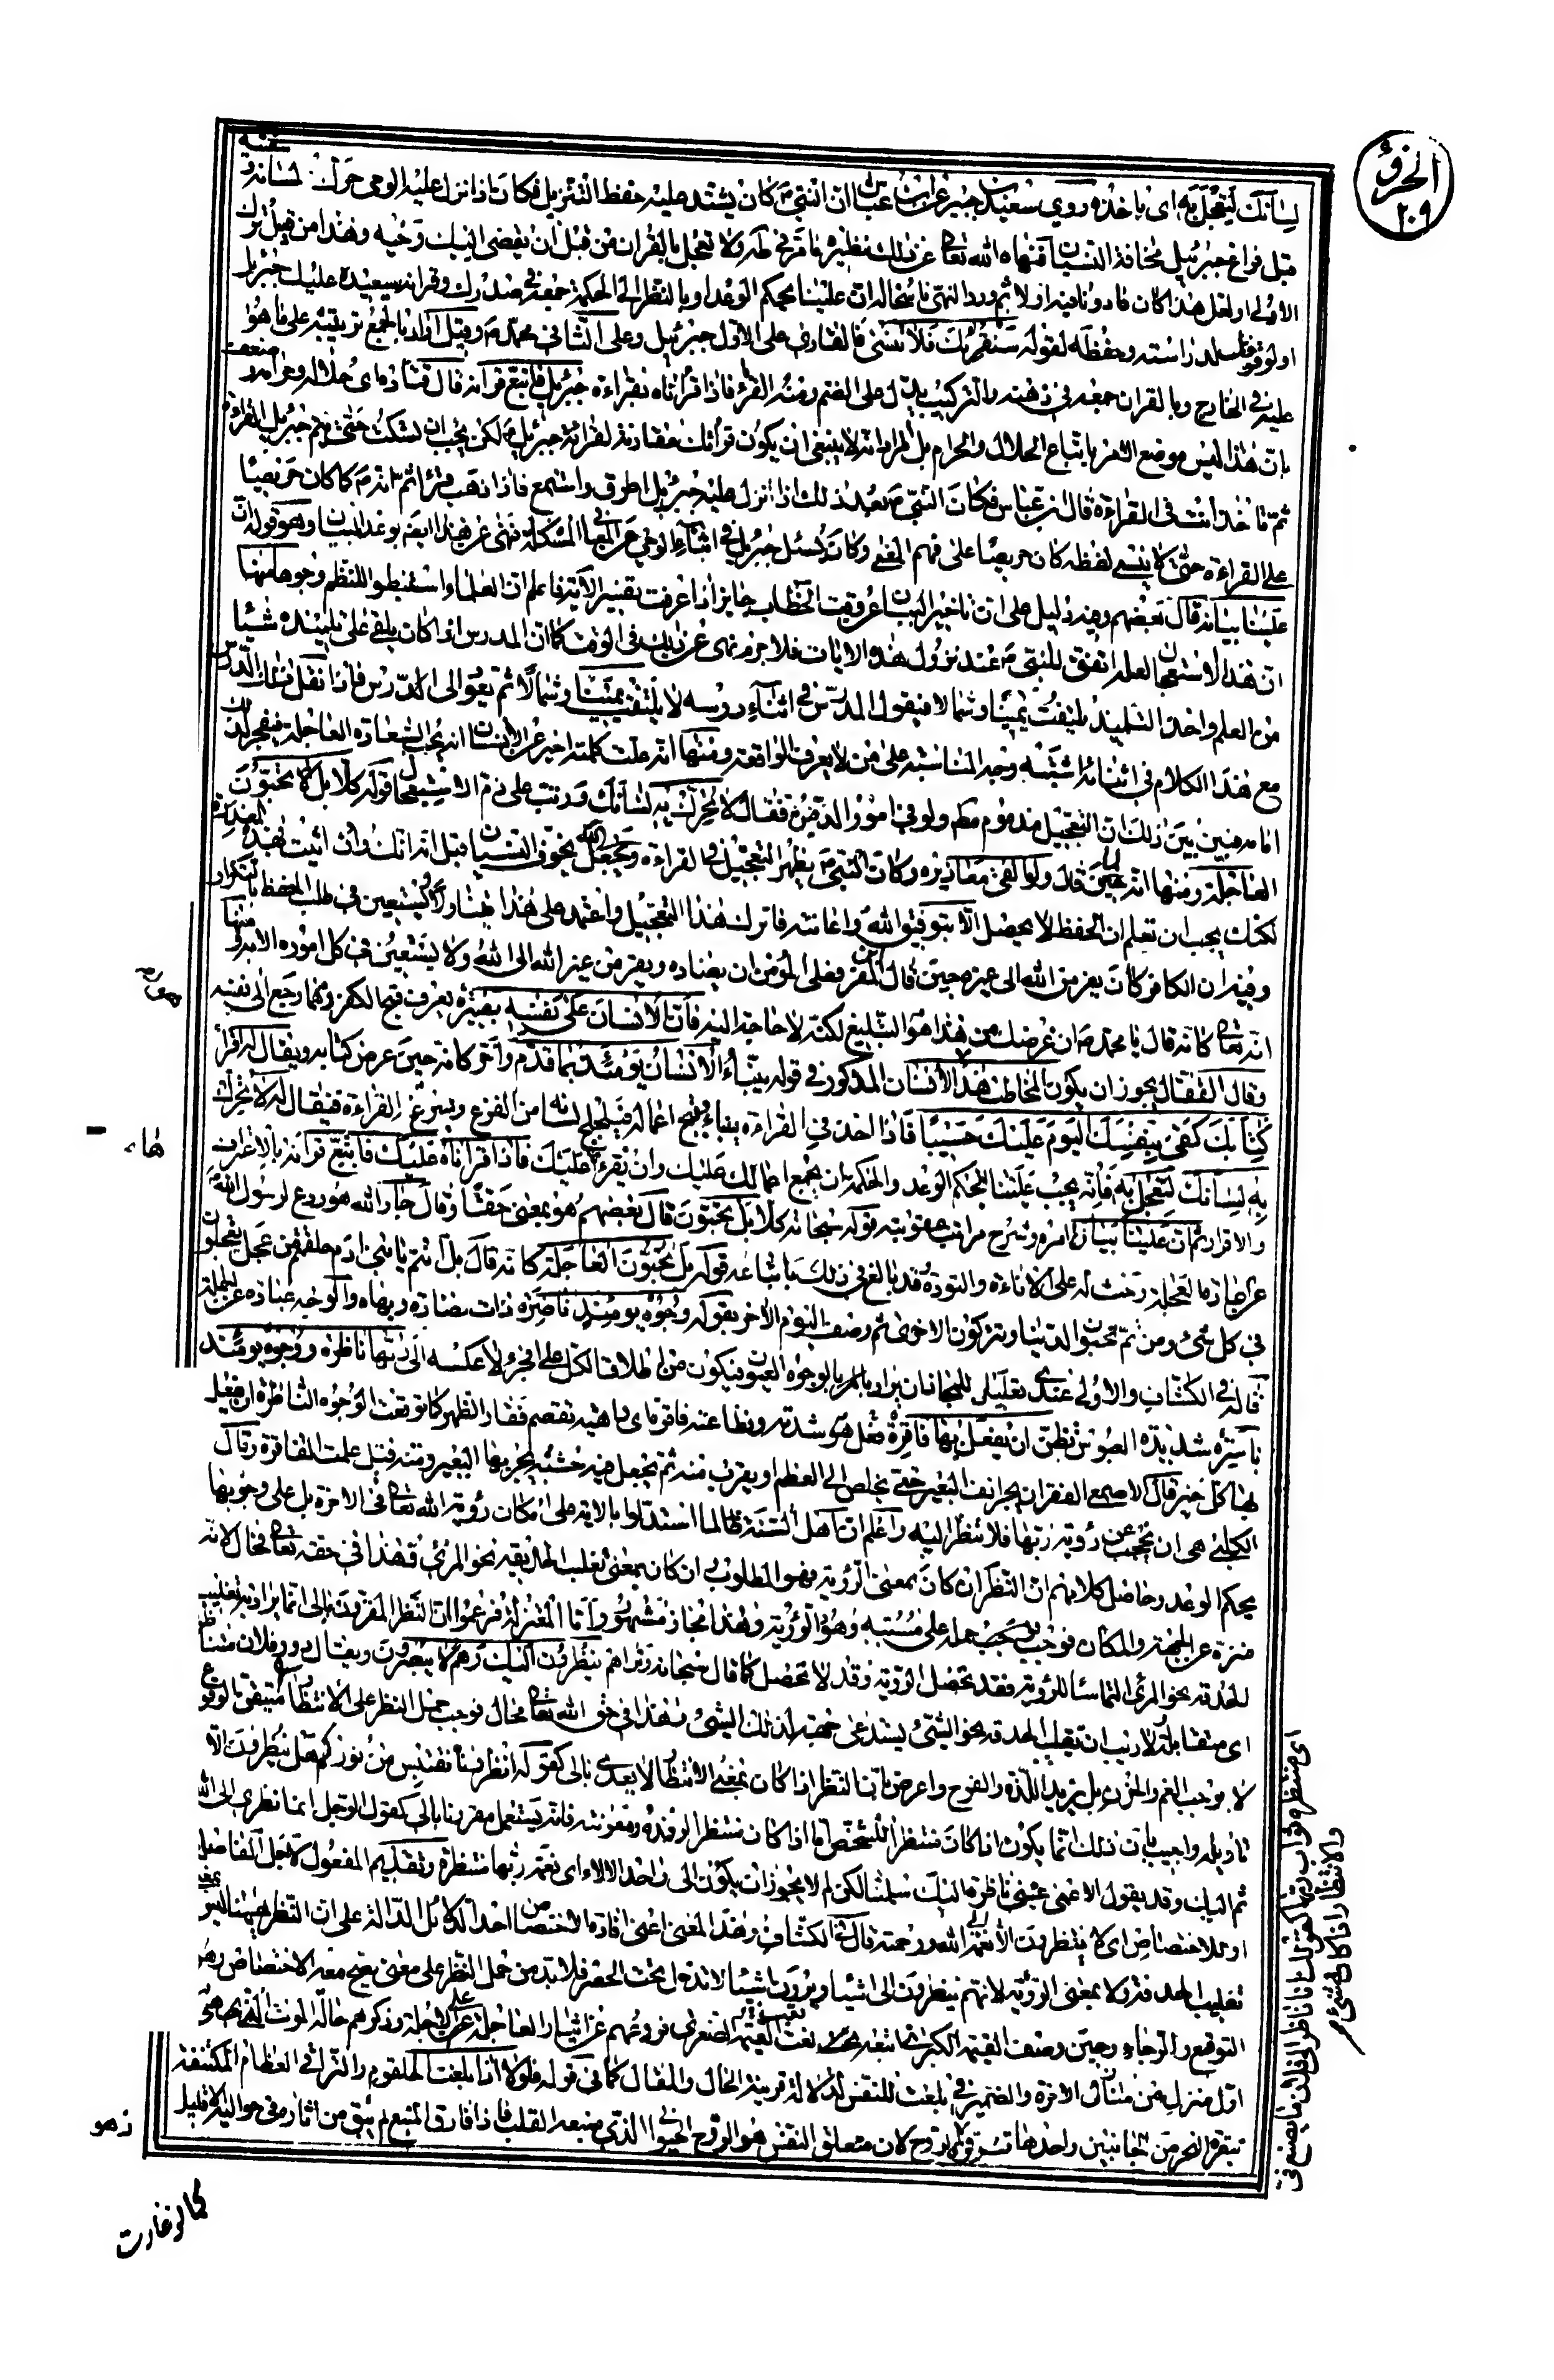 الجزؤ
٢٠٩
لسانك لتعجل به اى باخذه روي سعيد بن جبير عن ابن عباس ان النبي ص كان يشتد عليه حفظ التنزيل فكان اذا نزل عليه الوحي حرك لسانه وشفتيه
قبل فراغ جبرئيل مخافة النسيان فنهاه الله تعالى عن ذلك نظيره ما مر في طه ولا تعجل بالقران من قبل ان يقضى اليك وحيه وهذا من قبيل ترك
الاولى او لعل هذا كان مأذونا فيه اولا ثم ورد النهي ناسخا له ان علينا بحكم الوعد او بالنظر الى الحكمة جمعه في صدرك وقرانه سيعيده عليك جبريل
او توفيقك لدراسته وحفظه لقوله سنقرئك فلا تنسى فالقارئ على الاول جبرئيل وعلى الثاني محمد ص وقيل اراد بالجمع ترتيبه على ما هو
عليه في الخارج وبالقران جمعه في ذهنه والتركيب يدل على الضم ومنه القرء فاذا قرأناه بقراءة جبرئيل فاتبع قرانه قال قتادة اى حلاله وحرامه وضعف
بان هذا ليس موضع الامر باتباع الحلال والحرام بل المراد انه لا ينبغي ان يكون قراءتك مقارنة لقراءة جبرئيل لكن يجب ان تسكت حتى يتم جبرئيل القراءة
ثم تاخذ انت في القراءة قال ابن عباس فكان النبي ص بعد ذلك اذا انزل عليه جبرئيل اطرق واستمع فاذا ذهب قرأ ثم انه ص كما كان حريصا
على القراءة حتى لا ينسى لفظه كان حريصا على فهم المعنى وكان يسئل جبرئيل في اثناء الوحي عن المعاني المشكلة فنهى عن هذا ايضا بوعد البيان وهو قوله ان
علينا بيانه قال بعضهم وفيه دليل على ان تاخير البيان عن وقت الخطاب جايز اذا عرفت تفسير الاية فاعلم ان العلماء استنبطوا للنظم وجوها منها
ان هذا الاستعجال لعله اتفق للنبي ص عند نزول هذه الايات فلا جرم نهى عن ذلك في الوقت كما ان المدرس اذا كان يلقي على تلميذه شيئا
من العلم واخذ التلميذ يلتفت يمينا وشمالا فيقول المدرس في اثناء درسه لا تلتفت يمينا وشمالا ثم يعود الى الدرس فاذا نقل ذلك الدرس
مع هذا الكلام في اثنائه اشتبه وجه المناسبة على من لا يعرف الواقعة ومنها انه علت كلمته اخبر عن الانسان انه يحب السعادة العاجلة فيفجر لذلك
امامه فبين بين ذلك ان التعجيل مذموم مطلقا ولو في امور الدين فقال لا تحرك به لسانك ورتب على ذم الاستعجال قوله كلا بل تحبون
العاجلة ومنها انه لما قال ولو القى معاذيره وكان النبي ص يظهر التعجيل في القراءة ويجعل العذر فيه خوف النسيان قيل له انك وان اتيت بهذه المعذرة
لكنك يجب ان تعلم ان الحفظ لا يحصل الا بتوفيق الله واعانته فاترك هذا التعجيل واعتمد على هدايتنا ولا تستعين في طلب الحفظ بالتكرار
وفيه ان الكافر كان يفر من الله الى غيره حين قال اين المفر فعلى المؤمن ان يضاده ويفر من غير الله الى الله ولا يستعين في كل اموره الا به ومنها
انه تعالى كانه قال يا محمد ص ان غرضك من هذا هو التبليغ لكنه لا حاجة اليه فان الانسان على نفسه بصيرة يعرف قبح الكفر مهما رجع الى نفسه
وقال القفال يجوز ان يكون المخاطب هذا الانسان المذكور في قوله ينبأ الانسان يومئذ بما قدم واخر كانه حين عرض كتابه ويقال له اقرأ
كتابك كفى بنفسك اليوم عليك حسيبا فاذا اخذ في القراءة ينبأ بقبائح اعماله فيلجلج لسانه من الفزع ويسرع في القراءة فيقال له لا تحرك
به لسانك لتعجل به فانه يجب علينا بحكم الوعد والحكمة ان نجمع اعمالك عليك وان نقرئ عليك فاذا قرأناه عليك فاتبع قرانه بالاعتراف
والاقرار ثم ان علينا بيان امره وشرح مراتب عقوبته قوله سبحانه كلا بل تحبون قال بعضهم هو بمعنى حقا وقال جار الله هو ردع لرسول الله
عن عادة العجلة وحث له على الاناءة والتودة وقد بالغ في ذلك باتباعه قوله بل تحبون العاجلة كانه قال بل انتم يا بني ادم خلقتم من عجل تعجلون
في كل شيء ومن ثم تحبون الدنيا وتتركون الاخرى ثم وصف اليوم الاخر بقوله وجوه يومئذ ناضرة ذات نضارة وبهاء والوجه عبارة عن الجملة
قاله في الكشاف والاولى عندي تعليلا للمجاز ان يراد بالوجوه العيون فيكون من اطلاق الكل على الجزء لا عكسه الى ربها ناظرة ووجوه يومئذ
باسرة شديدة العبوس تظن ان يفعل بها فاقرة فعل هو في شدته وفظاعته فاقرة اى داهية تقصم فقار الظهر كما توقعت الوجوه الناظرة ان يفعل
بها كل خير قال الاصمعي الفقر ان يحز انف البعير حتى يخلص الى العظم او يقرب منه ثم يجعل فيه خشبة يجر بها البعير ومنه قيل عملت الفاقرة وقال
الكلبي هي ان تحجب عن رؤية ربها فلا تنظر اليه واعلم ان اهل السنة طالما استدلوا بالاية على امكان رؤية الله تعالى في الاخرة بل على وجوبها
بحكم الوعد وحاصل كلامهم ان النظر ان كان بمعنى الرؤية فهو المطلوب وان كان بمعنى تقليب الحدقة نحو المرئي فهذا في حقه تعالى محال لانه
منزه عن الجهة والمكان فوجب حمله على مسببه وهو الرؤية وهذا مجاز مشهور واما المعتزلة فزعموا ان النظر المقرون بالى انما يراد به تقليب
الحدقة نحو المرئي التماسا للرؤية فقد تحصل الرؤية وقد لا تحصل كما قال سبحانه وتراهم ينظرون اليك وهم لا يبصرون ويقال دور فلان متناظرة
اى متقابلة ولا ريب ان تقليب الحدقة نحو الشيء يستدعي جهة لذلك الشيء وهذا في حق الله تعالى محال فوجب حمل النظر على الانتظار المتيقن الوقوع
لا يوجب الغم والحزن بل يزيد اللذة والفرح واعترض بان النظر اذا كان بمعنى الانتظار لا يعدى بالى كقوله انظرونا نقتبس من نوركم هل ينظرون الا
تاويله واجيب بان ذلك انما يكون اذا كان منتظرا للشخص اما اذا كان منتظرا لرفده ومعونته فانه يستعمل مقرونا بالى كقول الرجل انما نظري الى الله
ثم اليك وقد يقول الاعمى عيني ناظرة اليك سلمنا لكن لم لا يجوز ان يكون الى واحد الالاء اى نعمة ربها منتظرة وتقديم المفعول لاجل الفاصلة
او للاختصاص اى لا ينتظرون الا نعمة الله ورحمته قال في الكشاف وهذا المعنى اعني افادة الاختصاص احد الدلائل الدالة على ان النظر ههنا ليس بمعنى
تقليب الحدقة ولا بمعنى الرؤية لانهم ينظرون الى اشياء ويرون اشياء لا تدخل تحت الحصر فلا بد من حمل النظر على معنى يصح معه الاختصاص وهو
التوقع والرجاء وحين وصف القيمة الكبرى اتبعه نعت القيمة الصغرى فردعهم عن ايثار العاجلة على الاجلة وذكرهم حالة الموت التي هي
اول منزل من منازل الاخرة والضمير في بلغت للنفس لدلالة قرينة الحال والمقال كما في قوله فلولا اذا بلغت الحلقوم والتراقي العظام المكتنفة
ثغرة النحر من الجانبين واحدها ترقوة لان متعلق النفس هو الروح الحيواني الذي منبعه القلب فاذا فارق المنبع لم يبق من اثاره في حواليه الا قليل